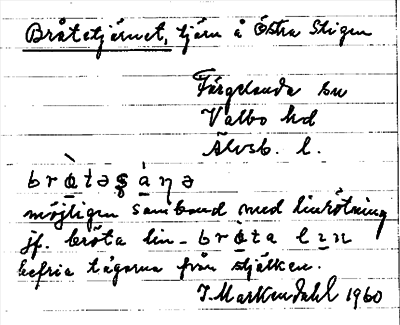 Bråtetjärnet, tjärn å Östra Stigen
Färgelanda sn
Valbo hd
Älvsb. l.
möjligen samband med linrötning
jf. bröta lin -
befria tågorna från stjälken.
J. Markendahl 1960